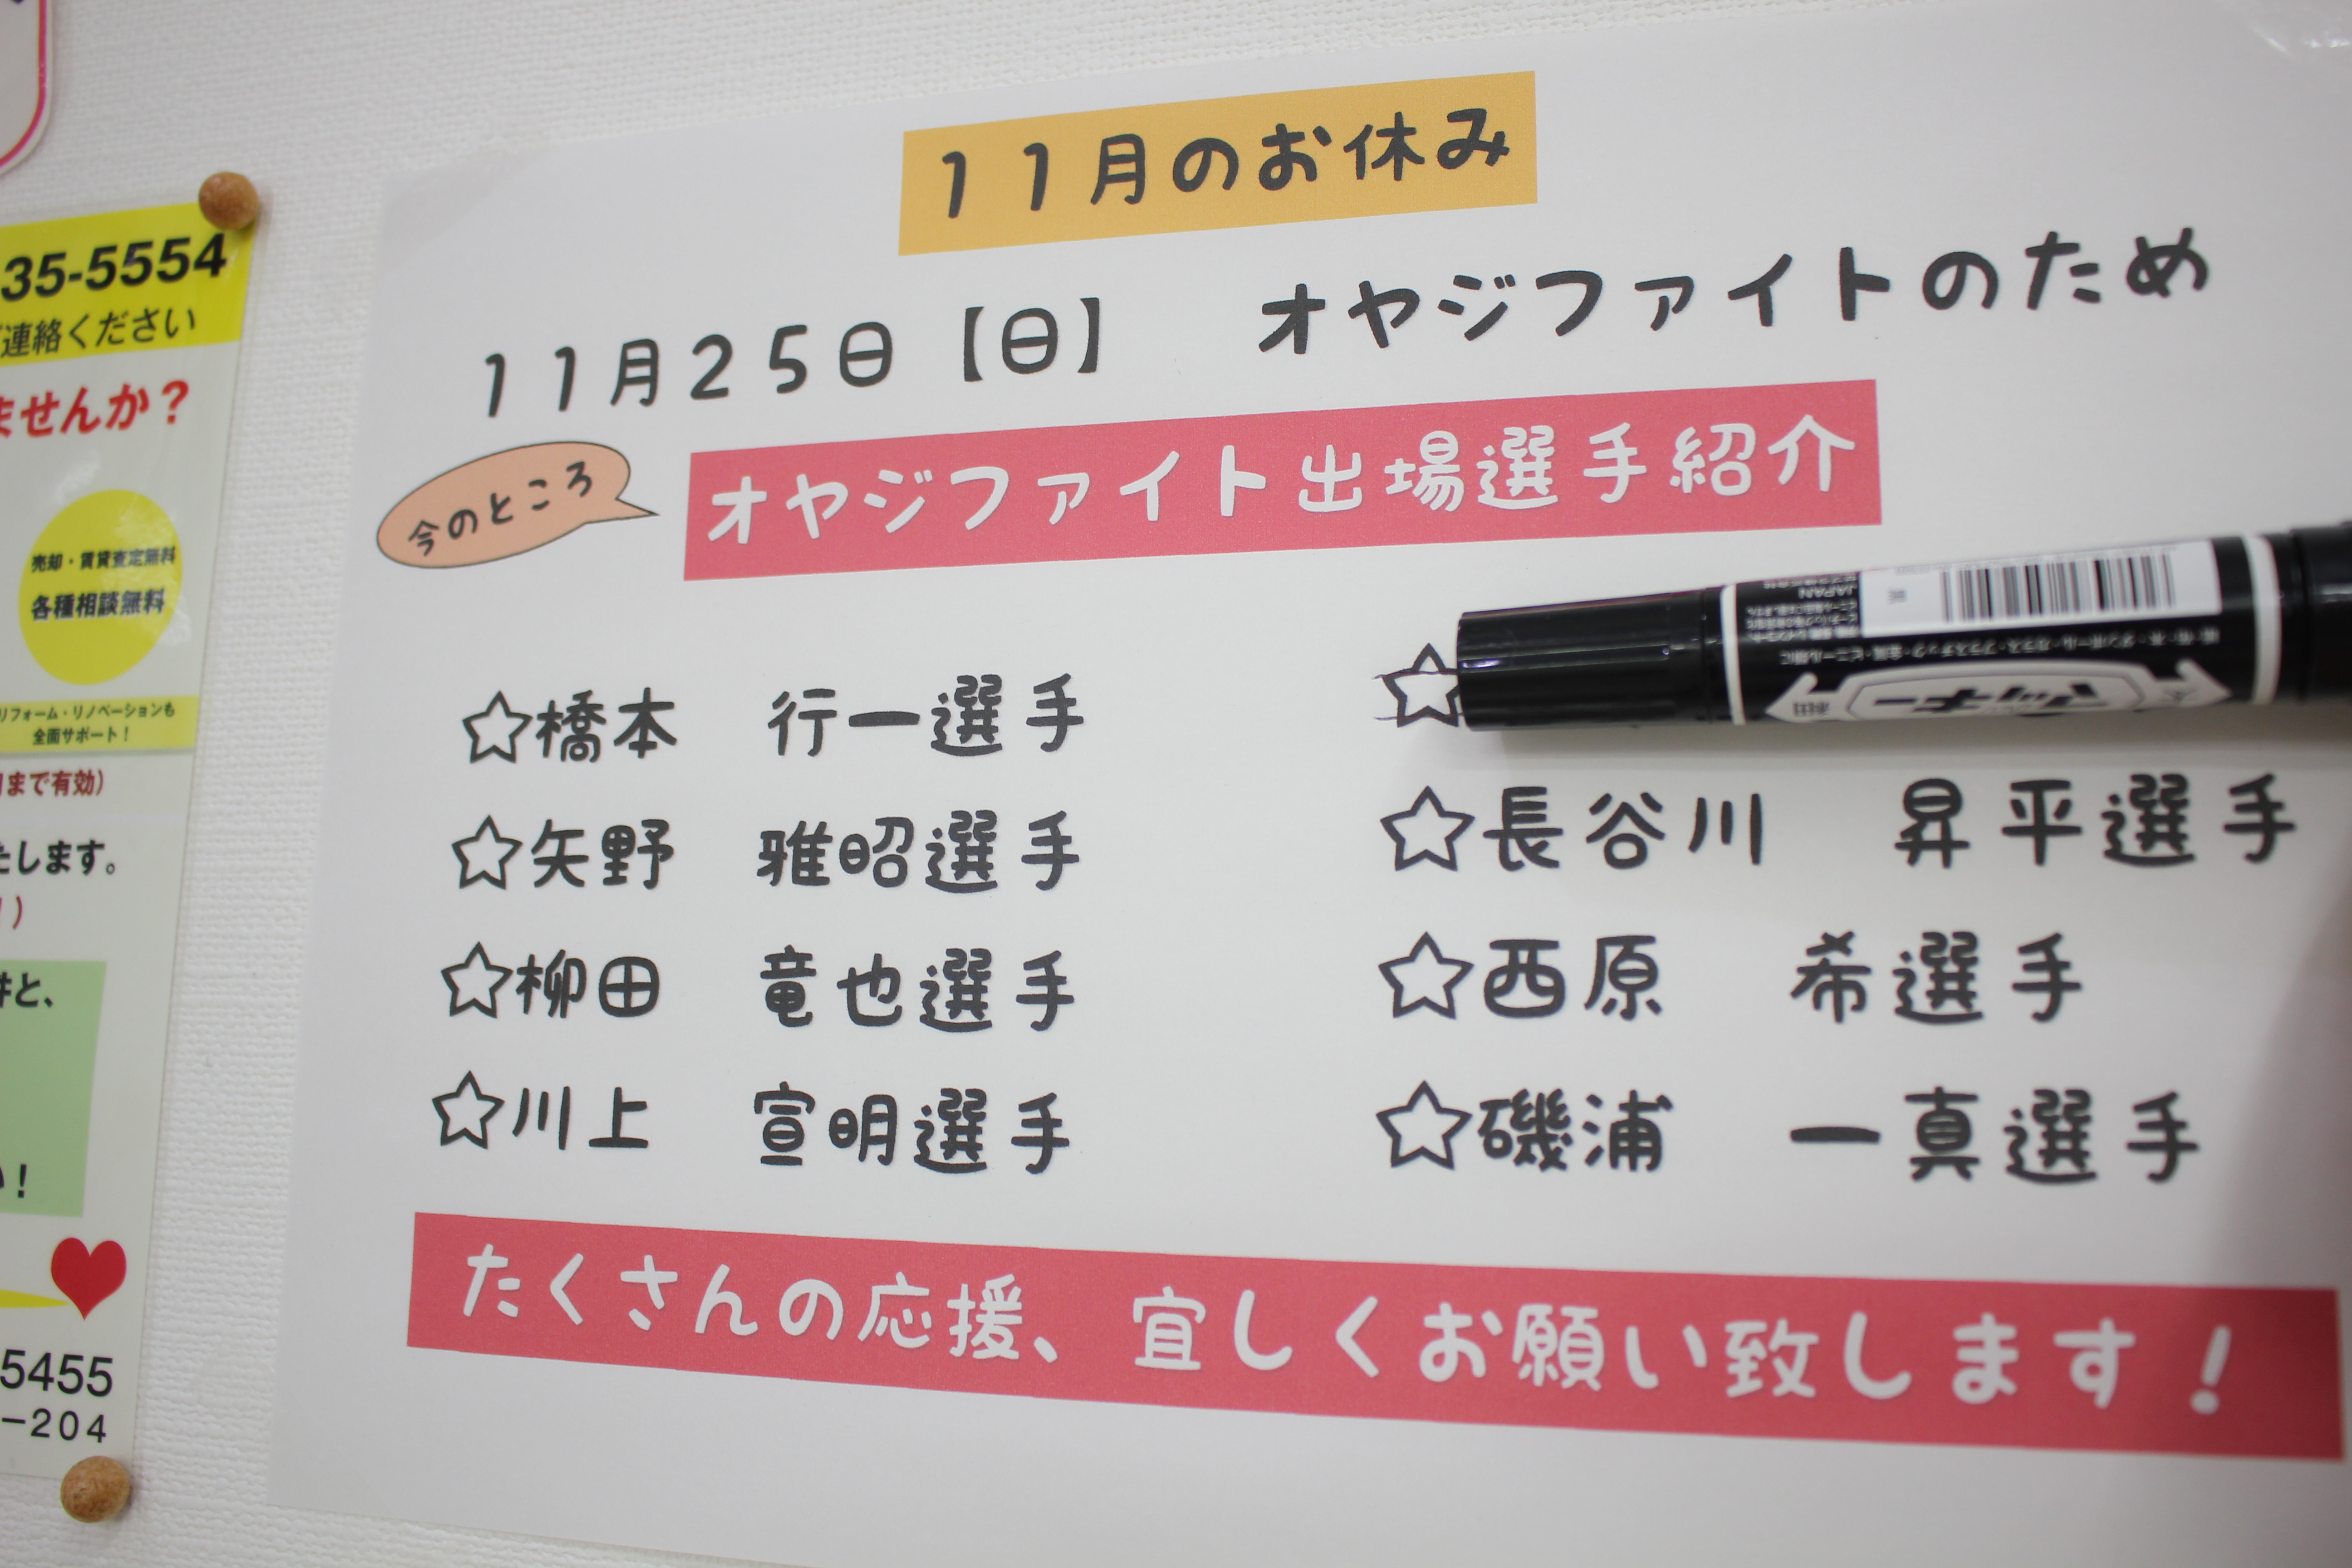 11月のお休み
11月25日【日】　オヤジファイトのため
今のところ
オヤジファイト出場選手紹介
☆橋本　行一選手
☆矢野　雅昭選手
☆柳田　竜也選手
☆川上　宣明選手
☆
☆長谷川　昇平選手
☆西原　希選手
☆磯浦　一真選手
たくさんの応援、宜しくお願い致します！
35-5554
連絡ください
ませんか？
売却・賃貸査定無料
各種相談無料
リフォーム・リノベーションも
全面サポート！
まで有効）
たします。
！）
件と、
い！
5455
－204
マッキー
細
JAPAN